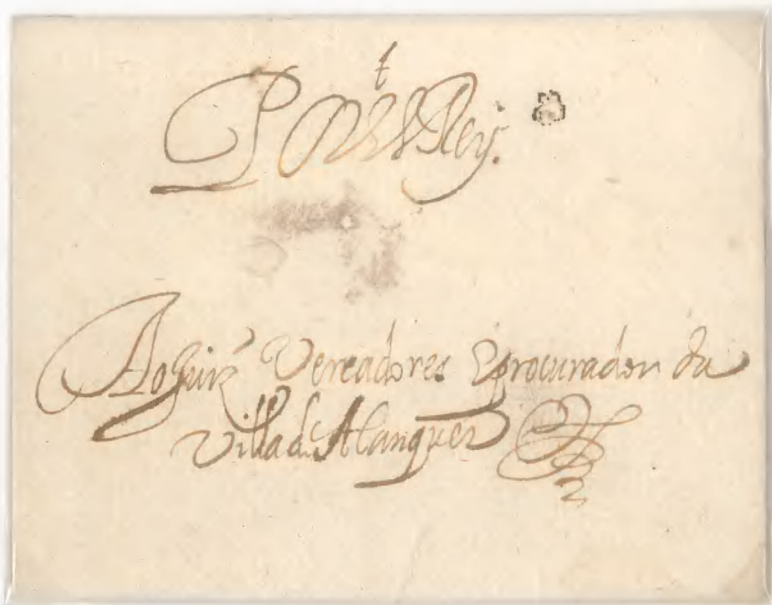 Por el Rey.
Ao Juiz Vereadores e procurador da
Villa de Alanquer